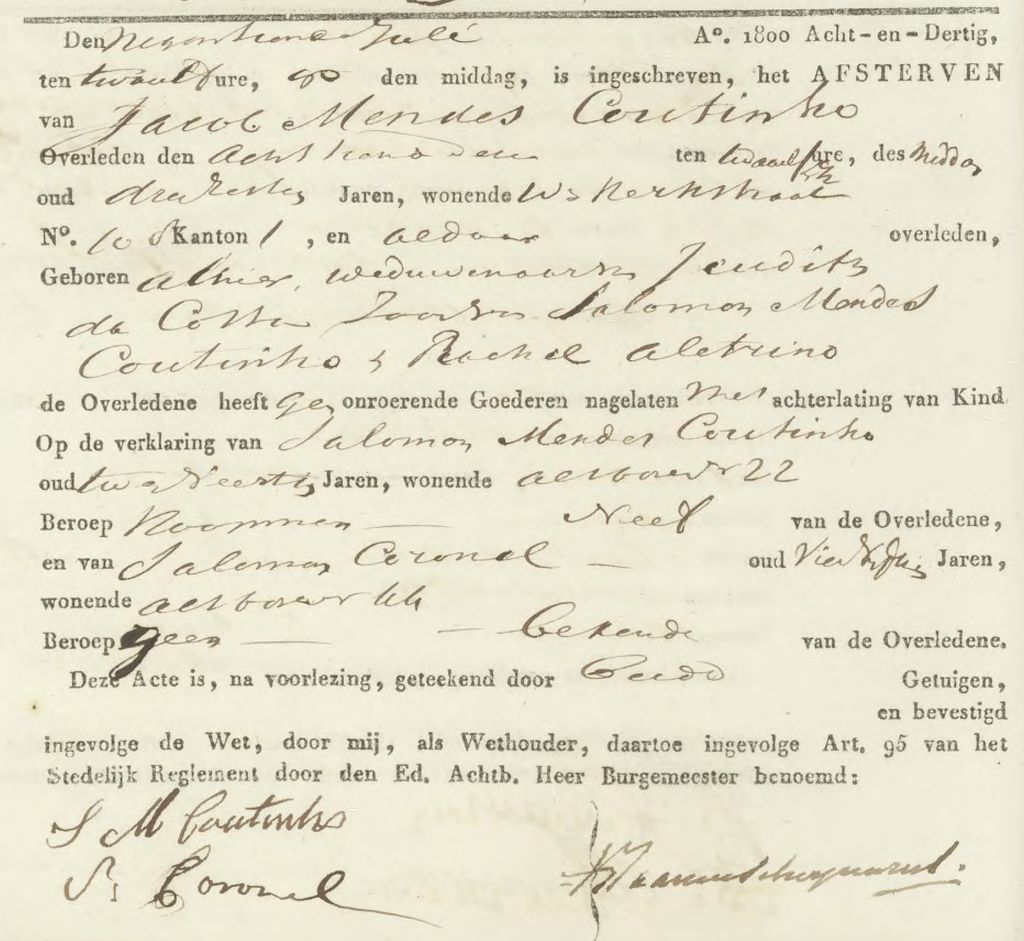 Den Negentiende Julÿ A°. 1800 Acht-en-Dertig,
ten twaalf ure, op den middag, is ingeschreven, het AFSTERVEN
van Jacob Mendes Coutinho
Overleden den Achttiende dezer ten twaalf ure, des Middags
oud drie zestig Jaren, wonende Ws Kerkstraat
N°. 108 Kanton 1, en aldaar overleden,
Geboren alhier, weduwenaar van Jeudith
da Costa Zoon van Salomon Mendes
Coutinho & Rachel Aletrino
de Overledene heeft Geen onroerende Goederen nagelaten Met achterlating van Kind
Op de verklaring van Salomon Mendes Coutinho
oud twee Veertig Jaren, wonende 22
Beroep Koopman — Neef van de Overledene,
en van Salomon Coronel — oud Vier Vijftig Jaren,
wonende 44
Beroep geen — — bekende van de Overledene.
Deze Acte is, na voorlezing, geteekend door beide Getuigen,
en bevestigd
ingevolge de Wet, door mij, als Wethouder, daartoe ingevolge Art. 95 van het
Stedelijk Reglement door den Ed. Achtb. Heer Burgemeester benoemd:
S M Coutinho
S. Coronel